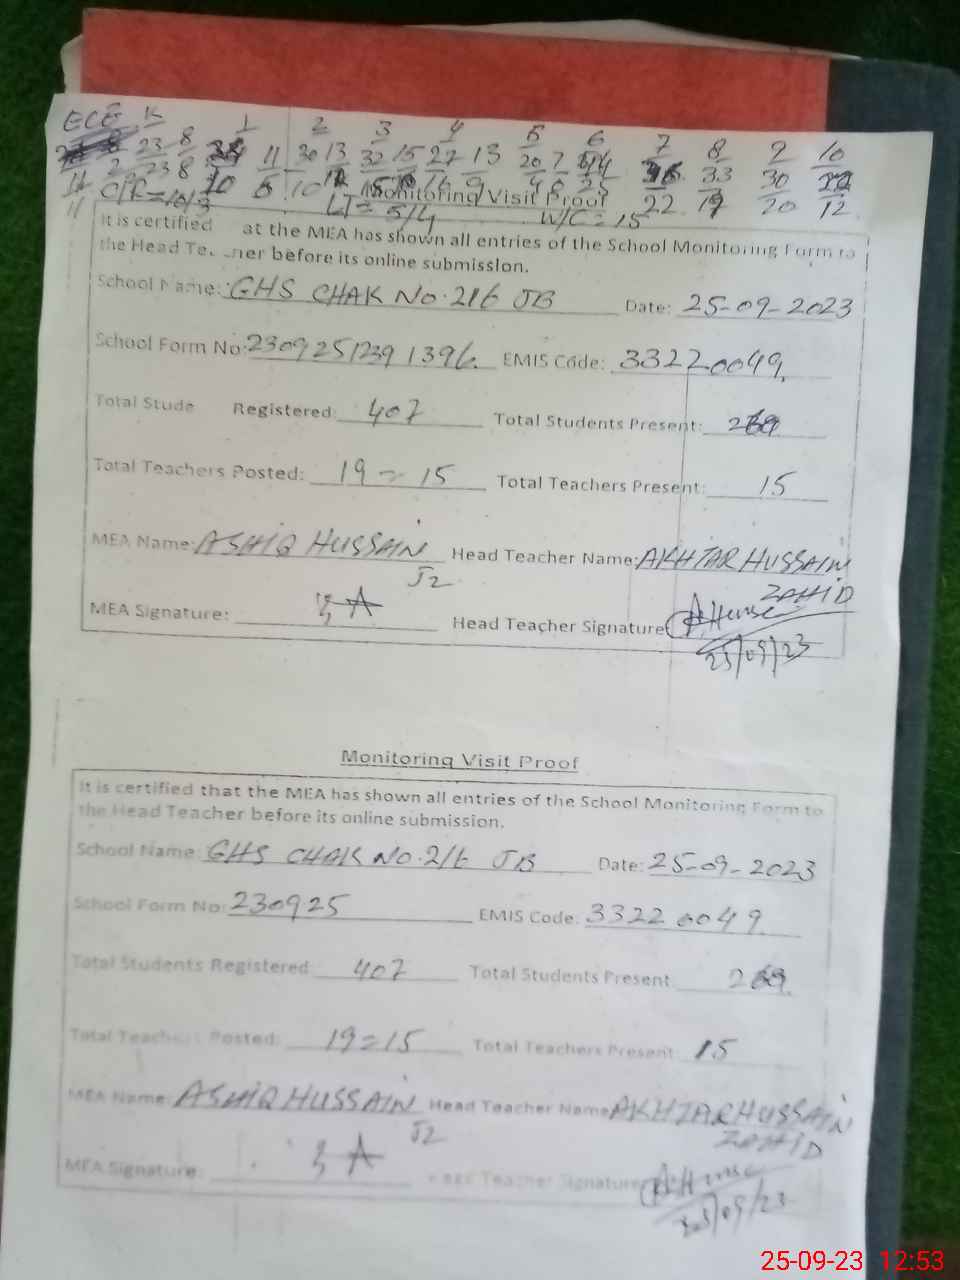 ECE K 1 2 3 4 5 6 7 8 9 10
23 8 11 30 13 32 15 27 13 20 7 33 30
23 8 10 6 10 9 22 20 12
Monitoring Visit Proof
LT = 5/4 W/C = 15
It is certified at the MEA has shown all entries of the School Monitoring Form to
the Head Te ner before its online submission.
School Name: GHS CHAK No. 216 JB Date: 25-09-2023
School Form No: EMIS Code: 33220049
Total Stude Registered: 407 Total Students Present:
Total Teachers Posted: 19 = 15 Total Teachers Present: 15
MEA Name: ASHIQ HUSSAIN Head Teacher Name: AKHTAR HUSSAIN
J2 ZAHID
MEA Signature: Head Teacher Signature
25/09/23
Monitoring Visit Proof
It is certified that the MEA has shown all entries of the School Monitoring Form to
the Head Teacher before its online submission.
School Name: GHS CHAK No. 216 JB Date: 25-09-2023
School Form No: 230925 EMIS Code: 33220049
Total Students Registered 407 Total Students Present
Total Teachers Posted: 19=15 Total Teachers Present 15
MEA Name: ASHIQ HUSSAIN Head Teacher Name AKHTAR HUSSAIN
J2 ZAHID
MEA Signature: Teacher Signature
25/09/23
25-09-23 12:53